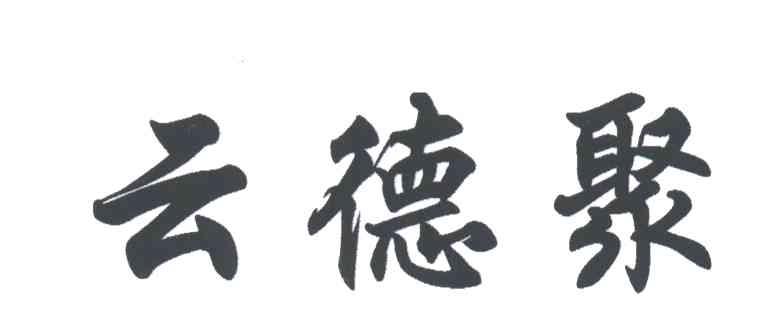 云德聚